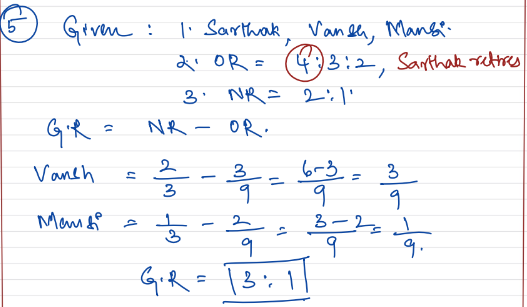 5 Given : 1. Sarthak, Vansh, Mansi.
2. OR = 4:3:2, Sarthak retires
3. NR = 2:1.
G.R = NR - OR.
Vansh = 2/3 - 3/9 = 6-3/9 = 3/9
Mansi = 1/3 - 2/9 = 3-2/9 = 1/9.
G.R = 3:1